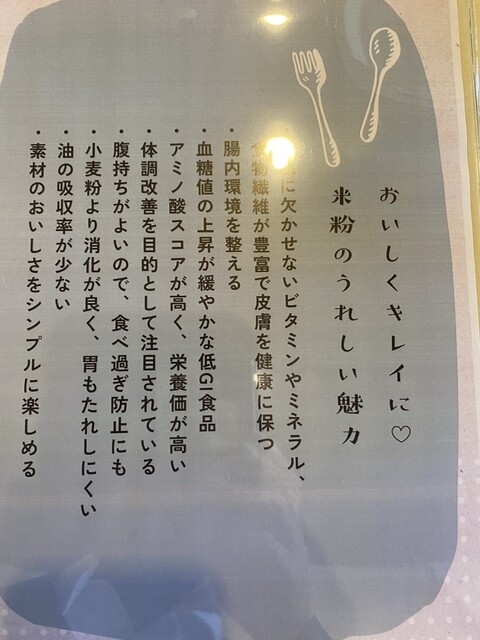 おいしくキレイに♡
米粉のうれしい魅力
に欠かせないビタミンやミネラル、
物繊維が豊富で皮膚を健康に保つ
・腸内環境を整える
・血糖値の上昇が緩やかな低GI食品
・アミノ酸スコアが高く、栄養価が高い
・体調改善を目的として注目されている
・腹持ちがよいので、食べ過ぎ防止にも
・小麦粉より消化が良く、胃もたれしにくい
・油の吸収率が少ない
・素材のおいしさをシンプルに楽しめる